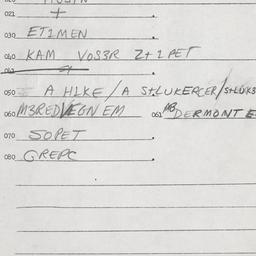 021 +
030 ET1MEN
040 KAM VOS3R 2+1 PET
050 A H1KE / A S+LUKERCER/S+LUKS
060 M3REDVEGN EM 061 MB DERMONT E
070 SOPET
080 GREPC